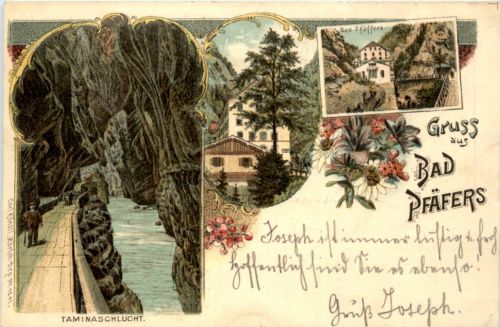 Bad Pfäffers
Gruss
aus
BAD
PFÄFERS
Joseph ist immer lustig & froh
Hoffentlich sind Sie es ebenso.
Grüß Joseph.
TAMINASCHLUCHT.